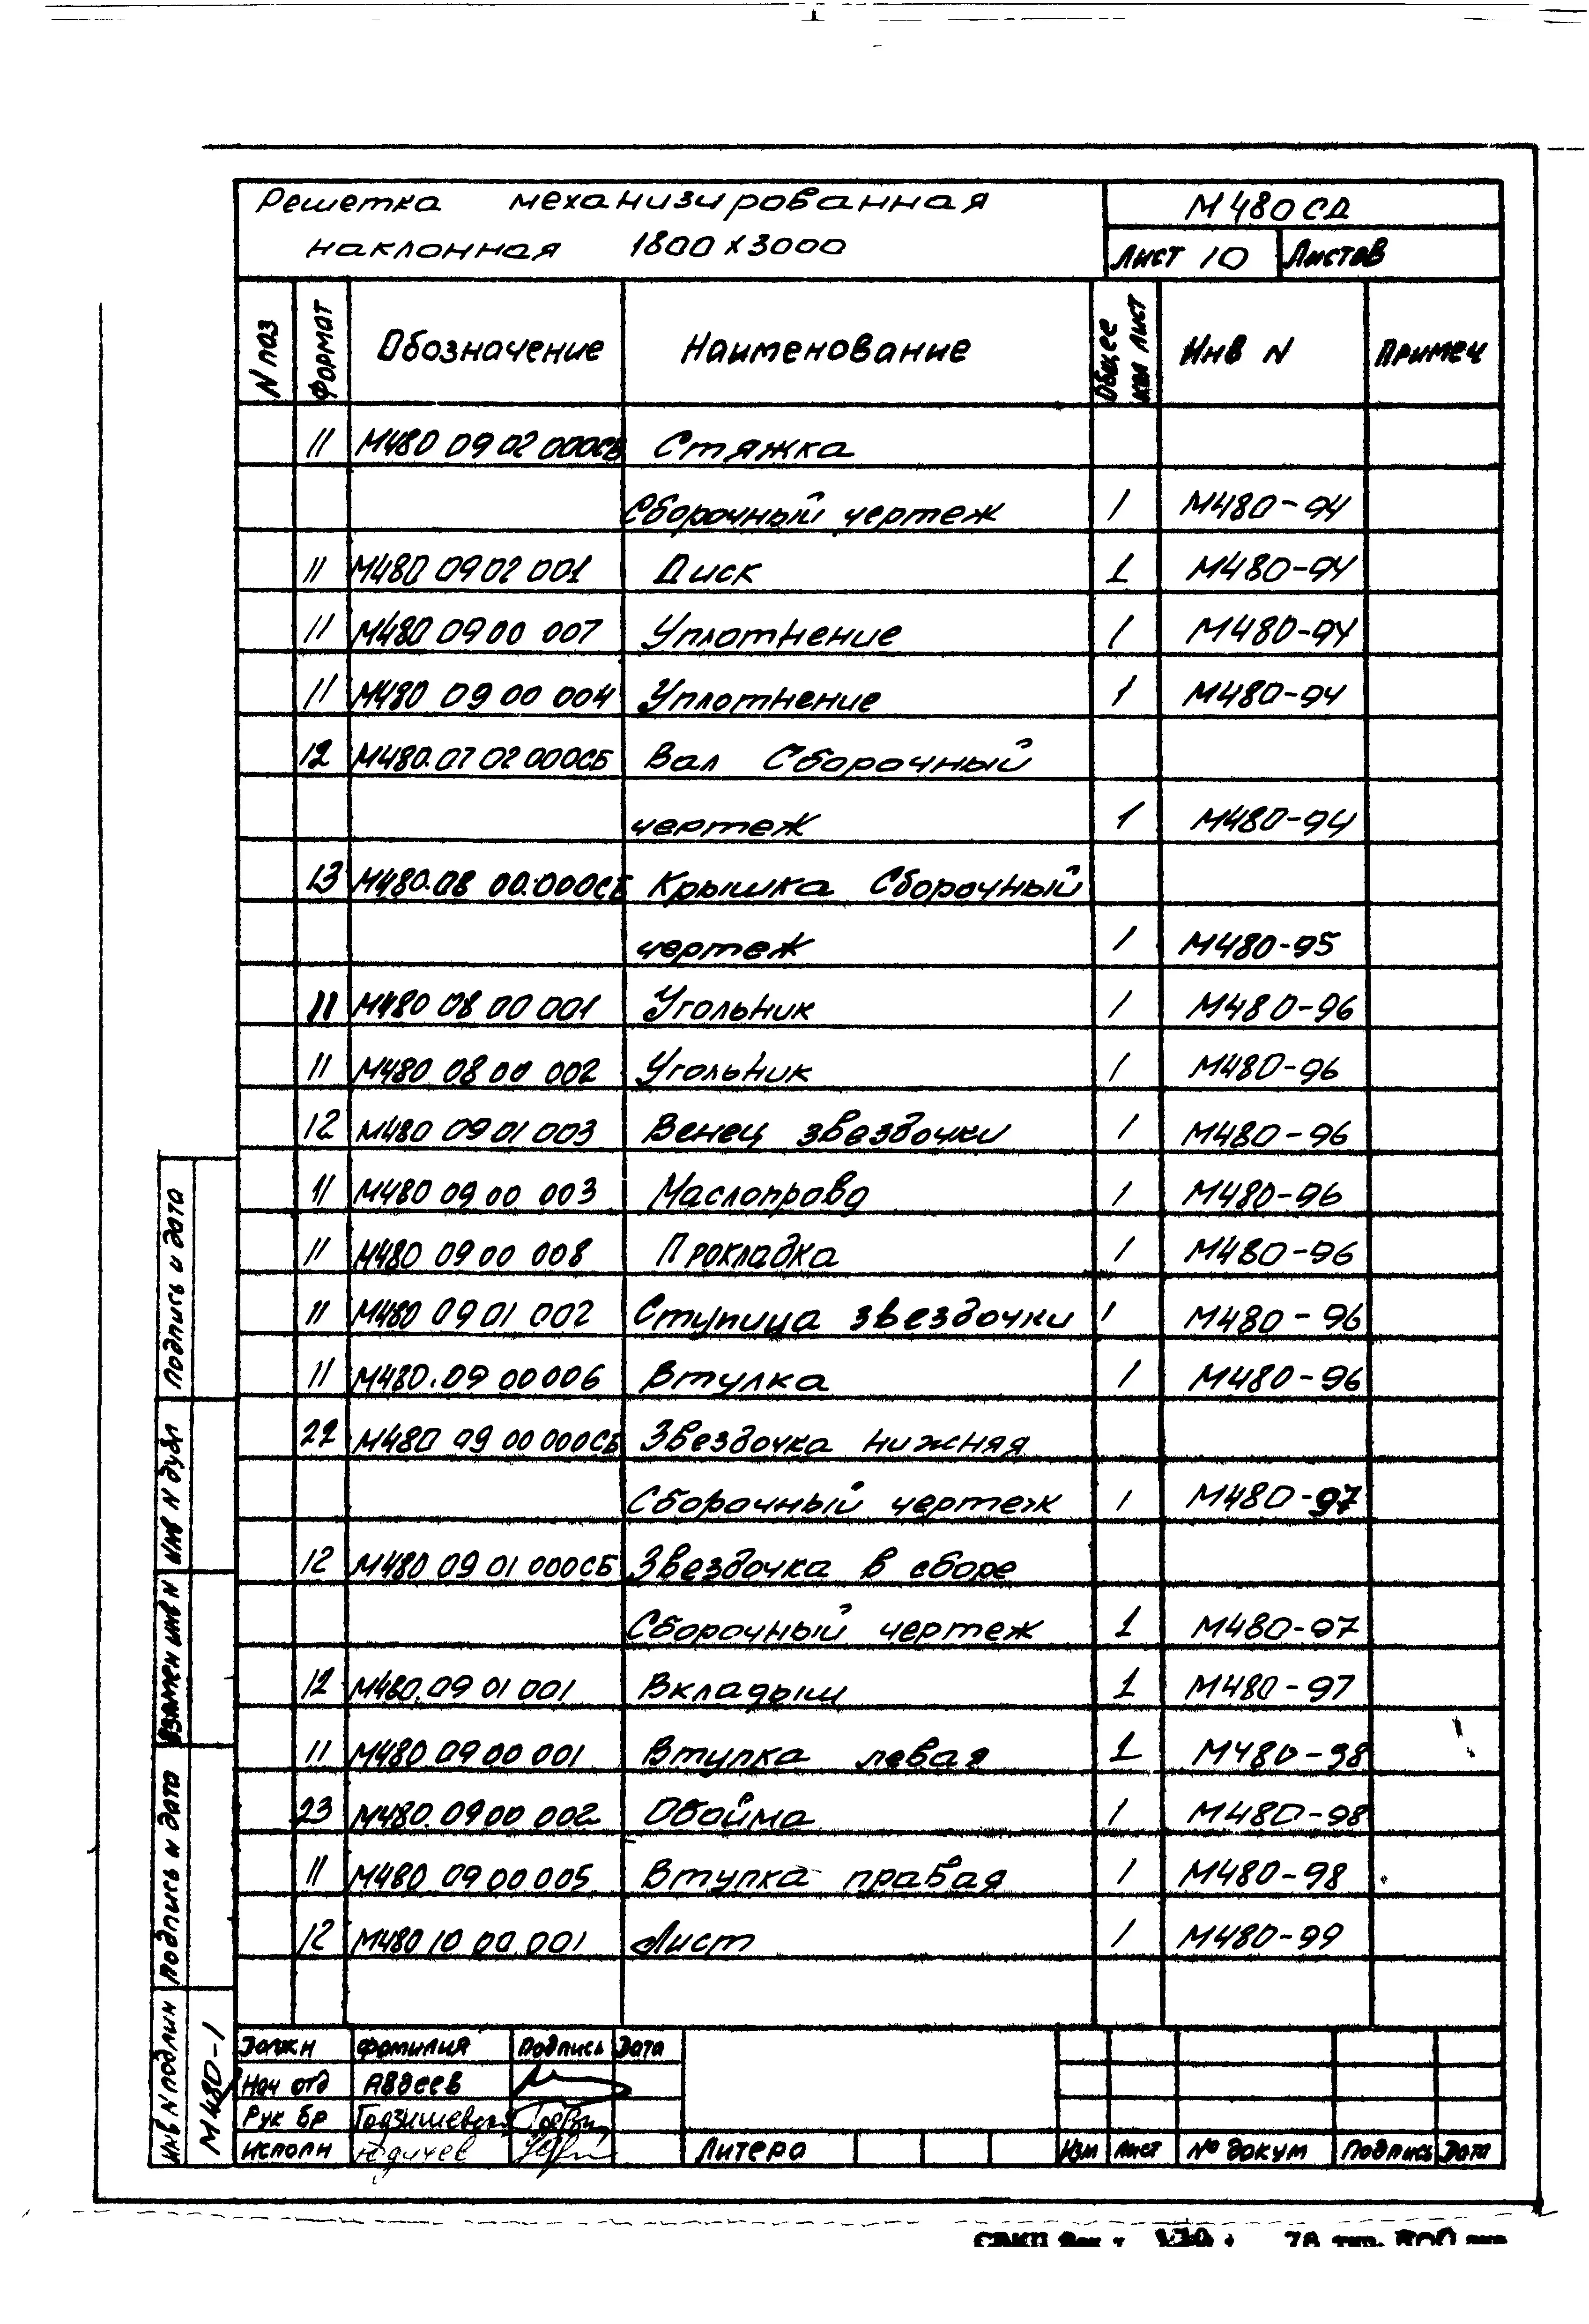 Решетка механизированная
наклонная 1800х3000
М480СД
Лист 10 Листов
N паз Формат Обозначение Наименование Общее кол лист Инв N Примеч
11 М480 09 02 000СБ Стяжка
Сборочный чертеж 1 М480-94
11 М480 09 02 001 Диск 1 М480-94
11 М480 09 00 007 Уплотнение 1 М480-94
11 М480 09 00 004 Уплотнение 1 М480-94
12 М480.07 02 000СБ Вал Сборочный
чертеж 1 М480-94
13 М480.08 00.000СБ Крышка Сборочный
чертеж 1 М480-95
11 М480 08 00 001 Угольник 1 М480-96
11 М480 08 00 002 Угольник 1 М480-96
12 М480 09 01 003 Венец звездочки 1 М480-96
11 М480 09 00 003 Маслопровд 1 М480-96
11 М480 09 00 008 Прокладка 1 М480-96
11 М480 09 01 002 Ступица звездочки 1 М480-96
11 М480.09 00 006 Втулка 1 М480-96
22 М480 09 00 000СБ Звездочка нижняя
Сборочный чертеж 1 М480-97
12 М480 09 01 000СБ Звездочка в сборе
Сборочный чертеж 1 М480-97
12 М480.09 01 001 Вкладыш 1 М480-97
11 М480.09 00 001 Втулка левая 1 М480-98
23 М480.09 00 002 Обойма 1 М480-98
11 М480 09 00 005 Втулка правая 1 М480-98
12 М480 10 00 001 Лист 1 М480-99
Подпись и дата
Инв N дубл
Взамен инв N
Подпись и дата
Инв N подлин М480-1
Должн Фамилия Подпись Дата
Нач отд Авдеев
Рук бр
Исполн Юдичев
Литера
Изм Лист № докум Подпись Дата